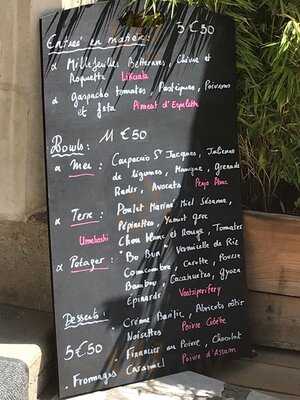 Entrée en matière 5€50
Millefeuilles Betteraves, Chèvre et
Roquette Likouala
Gaspacho tomates, Pastèques, Poivrons
et feta Piment d'Espelette
Bowls: 11€50
Mer: Carpaccio St Jacques, Juliennes
de légumes, Mangue, Grenade
Radis, Avocats Penja Blanc
Terre: Poulet Mariné Miel Sésame,
Pépinettes, Yaourt Grec
Umeboshi Chou blanc et Rouge, Tomates
Potager: Bo Bun Vermicelle de Riz
Concombre, Carotte, Pousse
Bambou, Cacahuètes, Gyoza
Epinards Voatsiperifery
Desserts: Crème Basilic, Abricots rôtis
Noisettes Poivre Cubèbe
5€50 Financier au Poivre, Chocolat
Fromages Caramel Poivre d'Assam